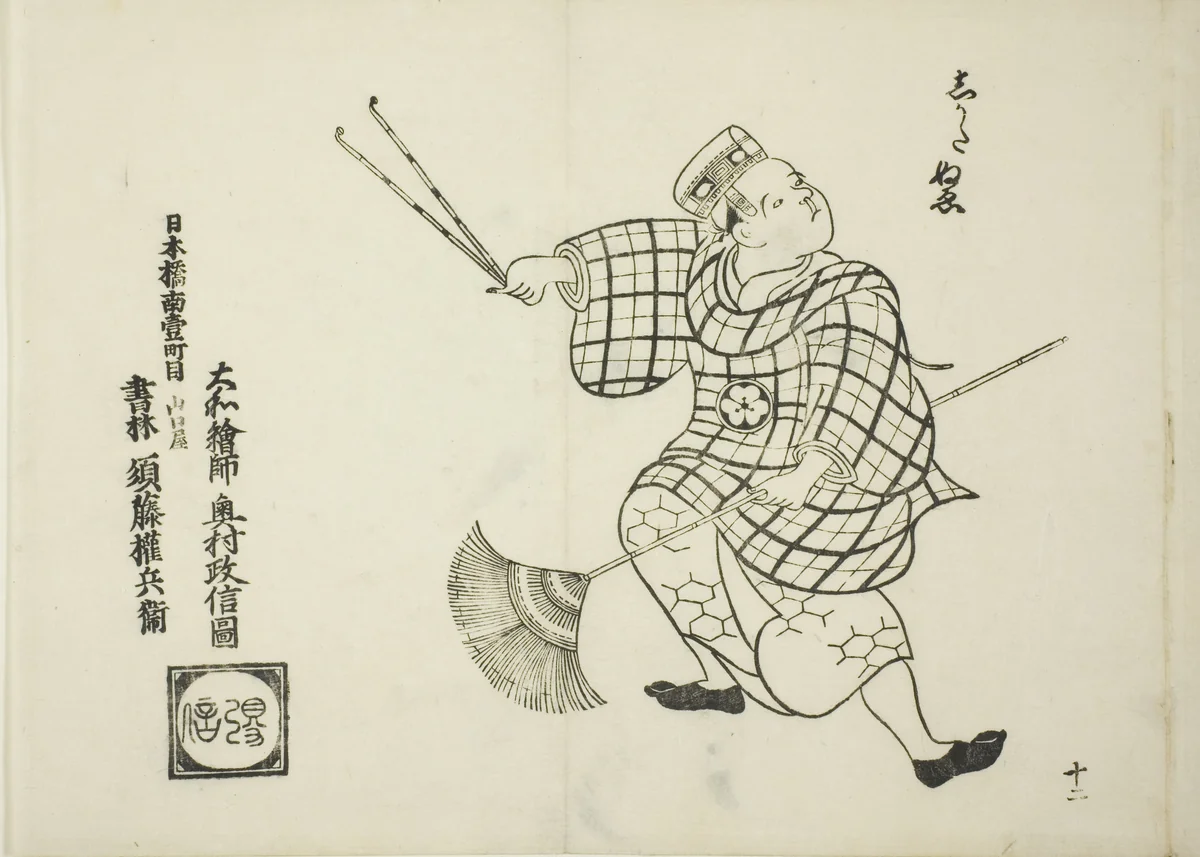 しかた ぬゑ
十二
大和繪師 奥村政信圖
日本橋南壹町目
山口屋
書林 須藤權兵衞